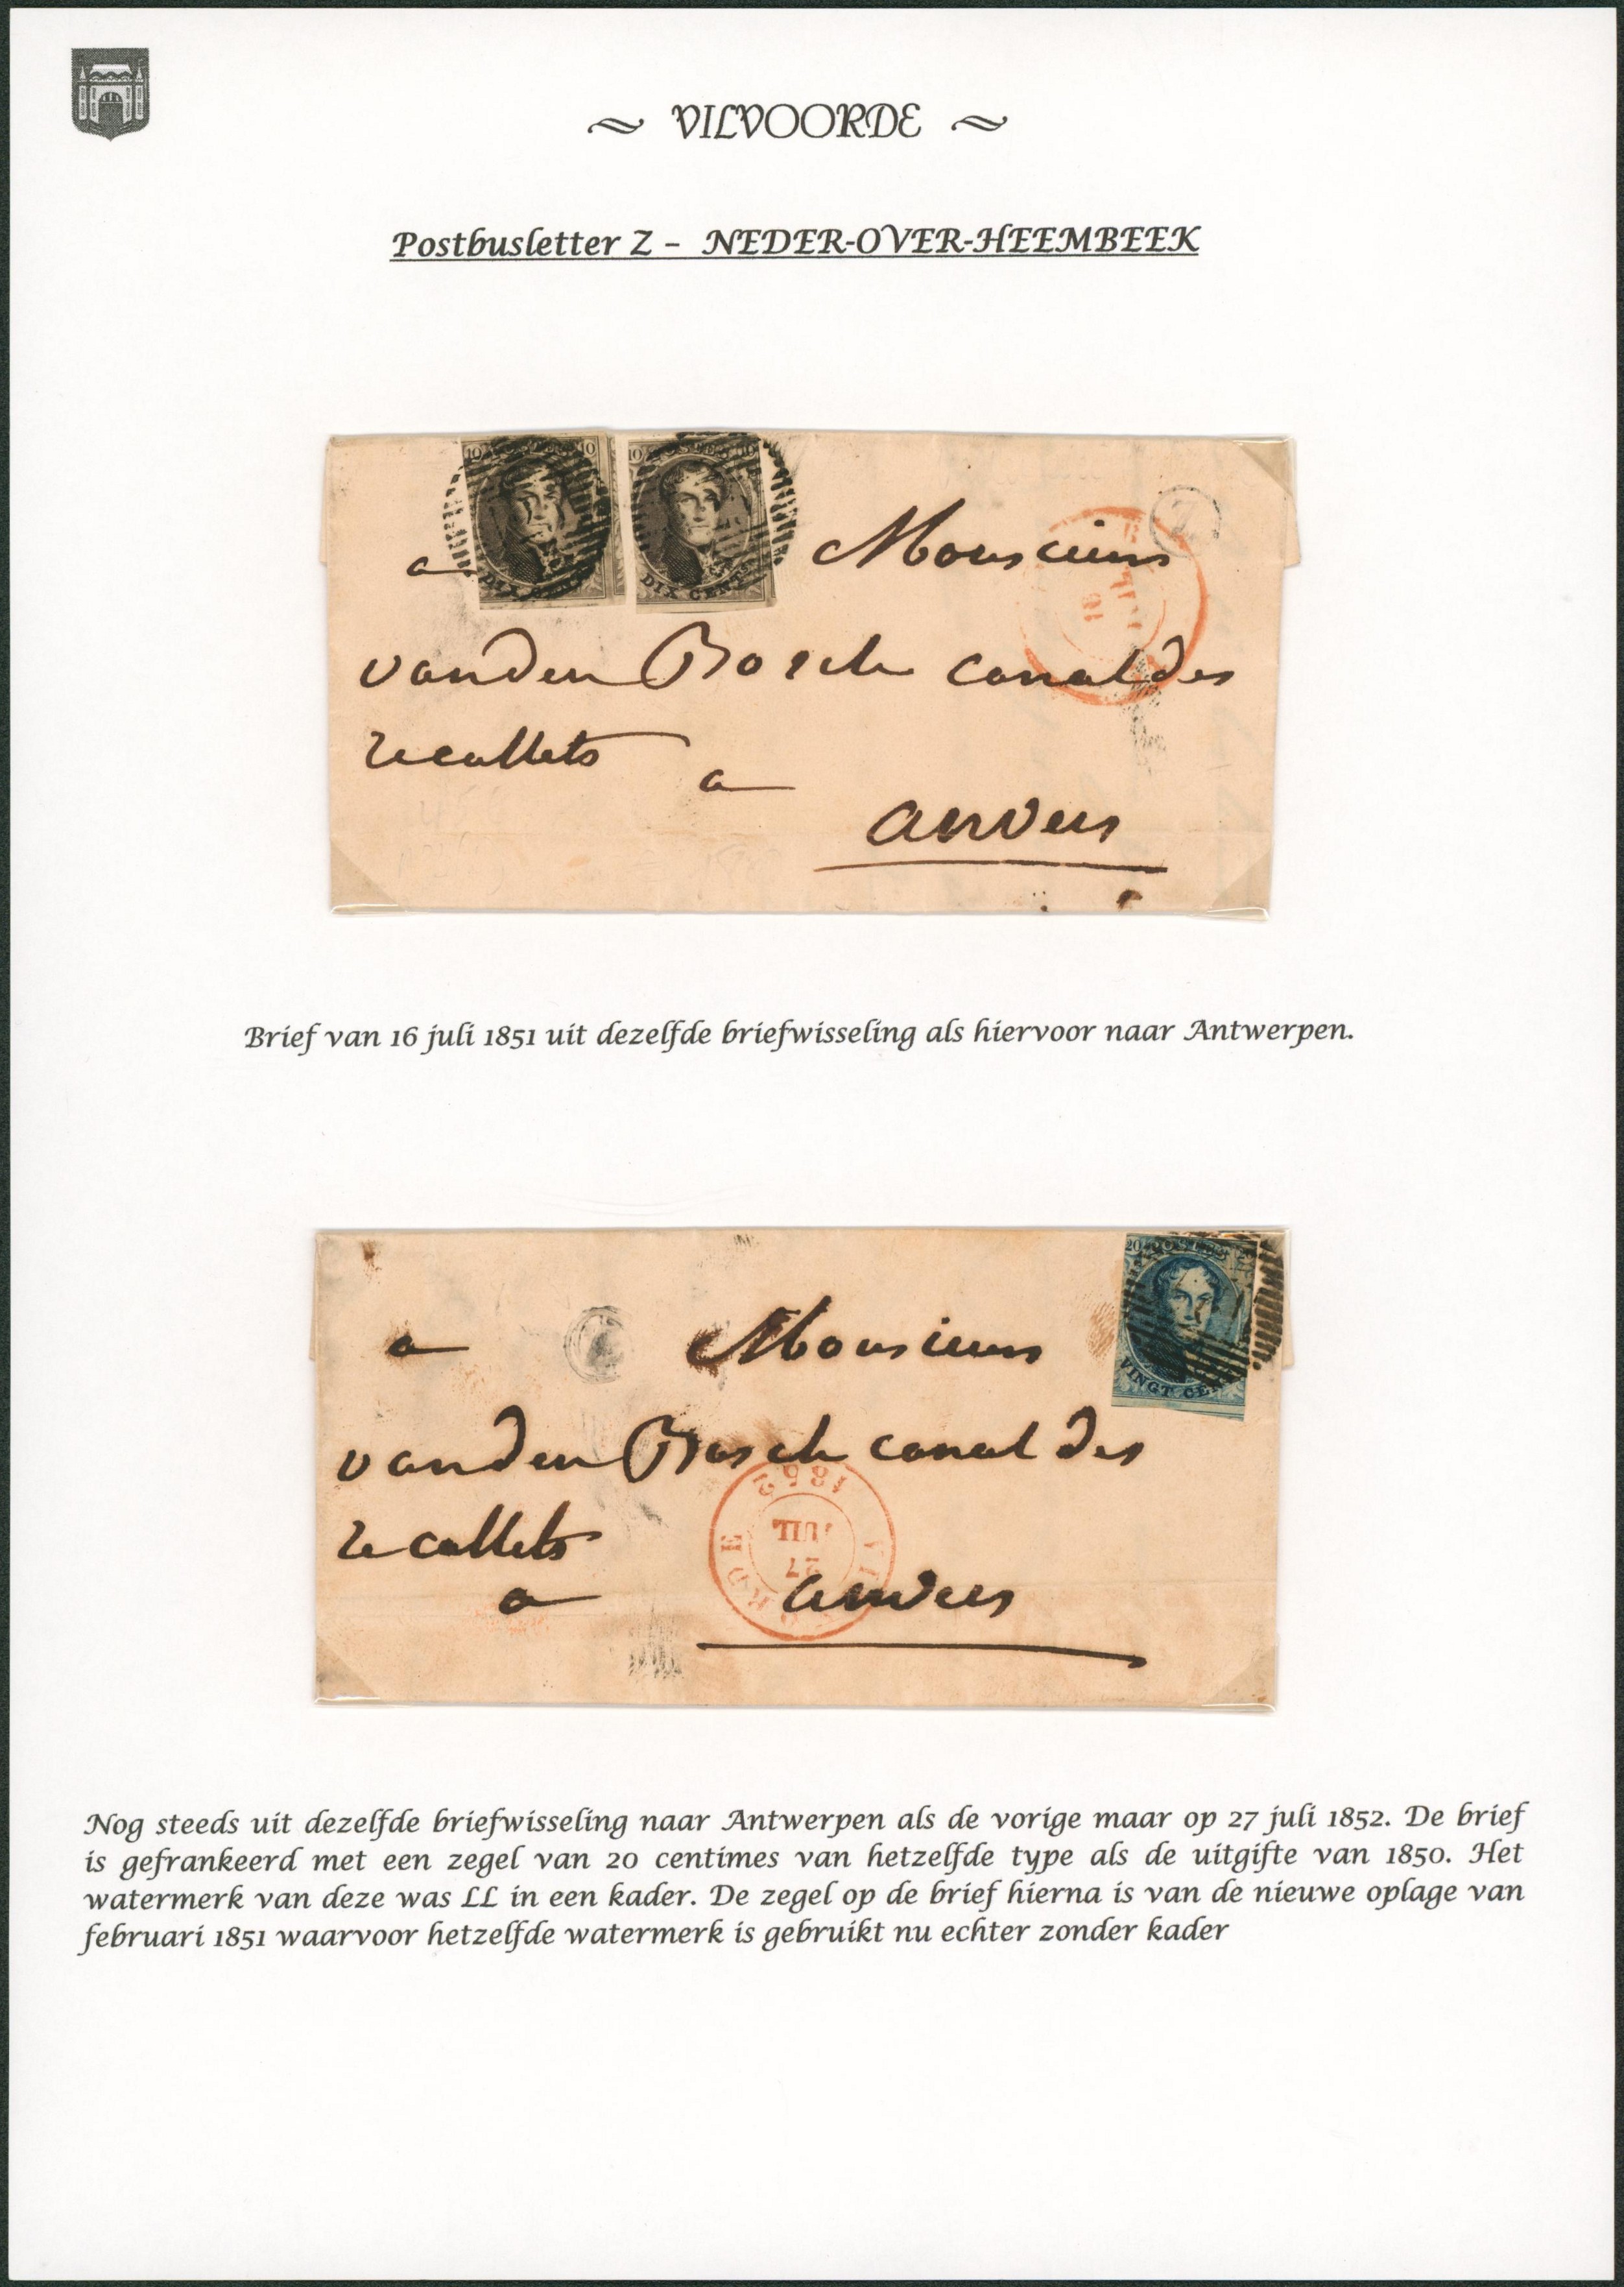 ~ VILVOORDE ~
Postbusletter Z – NEDER-OVER-HEEMBEEK
10 POSTES 10
DIX CENTS
10 POSTES 10
DIX CENTS
Z
16
a Monsieur
vanden Bosch canal des
recollets
a
anvers
Brief van 16 juli 1851 uit dezelfde briefwisseling als hiervoor naar Antwerpen.
20 POSTES 20
VINGT CEN
a Monsieur
vanden Bosch canal des
1852
JUIL
27
recollets
a anvers
Nog steeds uit dezelfde briefwisseling naar Antwerpen als de vorige maar op 27 juli 1852. De brief
is gefrankeerd met een zegel van 20 centimes van hetzelfde type als de uitgifte van 1850. Het
watermerk van deze was LL in een kader. De zegel op de brief hierna is van de nieuwe oplage van
februari 1851 waarvoor hetzelfde watermerk is gebruikt nu echter zonder kader